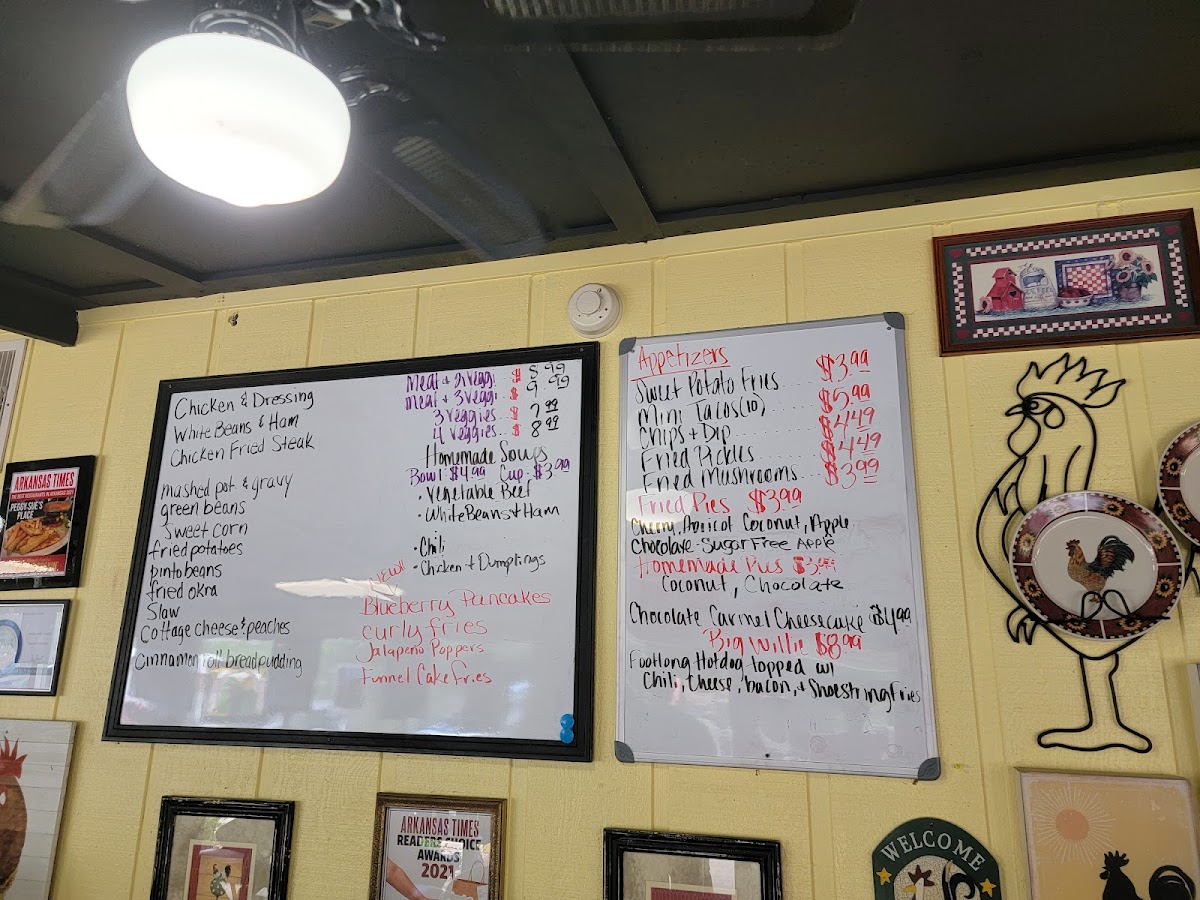 Chicken & Dressing
White Beans & Ham
Chicken Fried Steak
mashed pot & gravy
green beans
Sweet corn
fried potatoes
pinto beans
fried okra
Slaw
Cottage cheese & peaches
Cinnamon roll bread pudding
Meat + 2 Veggi. $ 8.99
Meat + 3 Veggi $ 9.99
3 Veggies.. $ 7.99
4 Veggies... $ 8.99
Homemade Soups
Bowl $4.99 Cup $3.99
• Vegetable Beef
• White Beans + Ham
• Chili
• Chicken + Dumplings
NEW!
Blueberry Pancakes
curly fries
Jalapeno Poppers
Funnel Cake fries
Appetizers
Sweet Potato Fries.... $3.99
Mini Tacos (10)...... $5.99
Chips + Dip.......... $4.49
Fried Pickles........ $4.49
Fried Mushrooms..... $3.99
Fried Pies $3.99
Cherry, Apricot Coconut, Apple
Chocolate - Sugar Free Apple
Homemade Pies $3.99
Coconut, Chocolate
Chocolate Carmel Cheesecake $4.99
Big Willie $8.99
Footlong Hotdog topped w/
Chili, Cheese, bacon, + Shoestring Fries
ARKANSAS TIMES
THE BEST RESTAURANTS IN ARKANSAS 2021
PEGGY SUE'S
PLACE
ARKANSAS TIMES
READERS CHOICE
AWARDS
2021
WELCOME